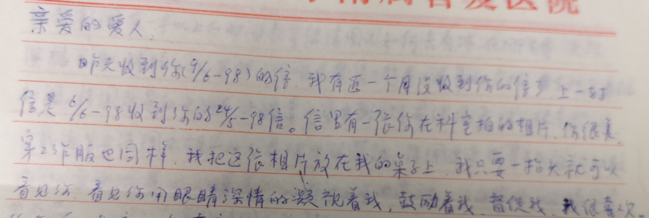 病者爱医院
亲爱的爱人
昨天收到你(9/6-98)的信，我有近一个月没收到你的信了上一封
信是6/6-98收到你的24/5-98信。信里有一张你在科室拍的相片，你很美，
穿工作服也同样，我把这张相片放在我的桌子上，我只要一抬头就可以
看见你，看见你用眼睛深情的凝视着我，鼓励着我，督促我，我很喜欢。